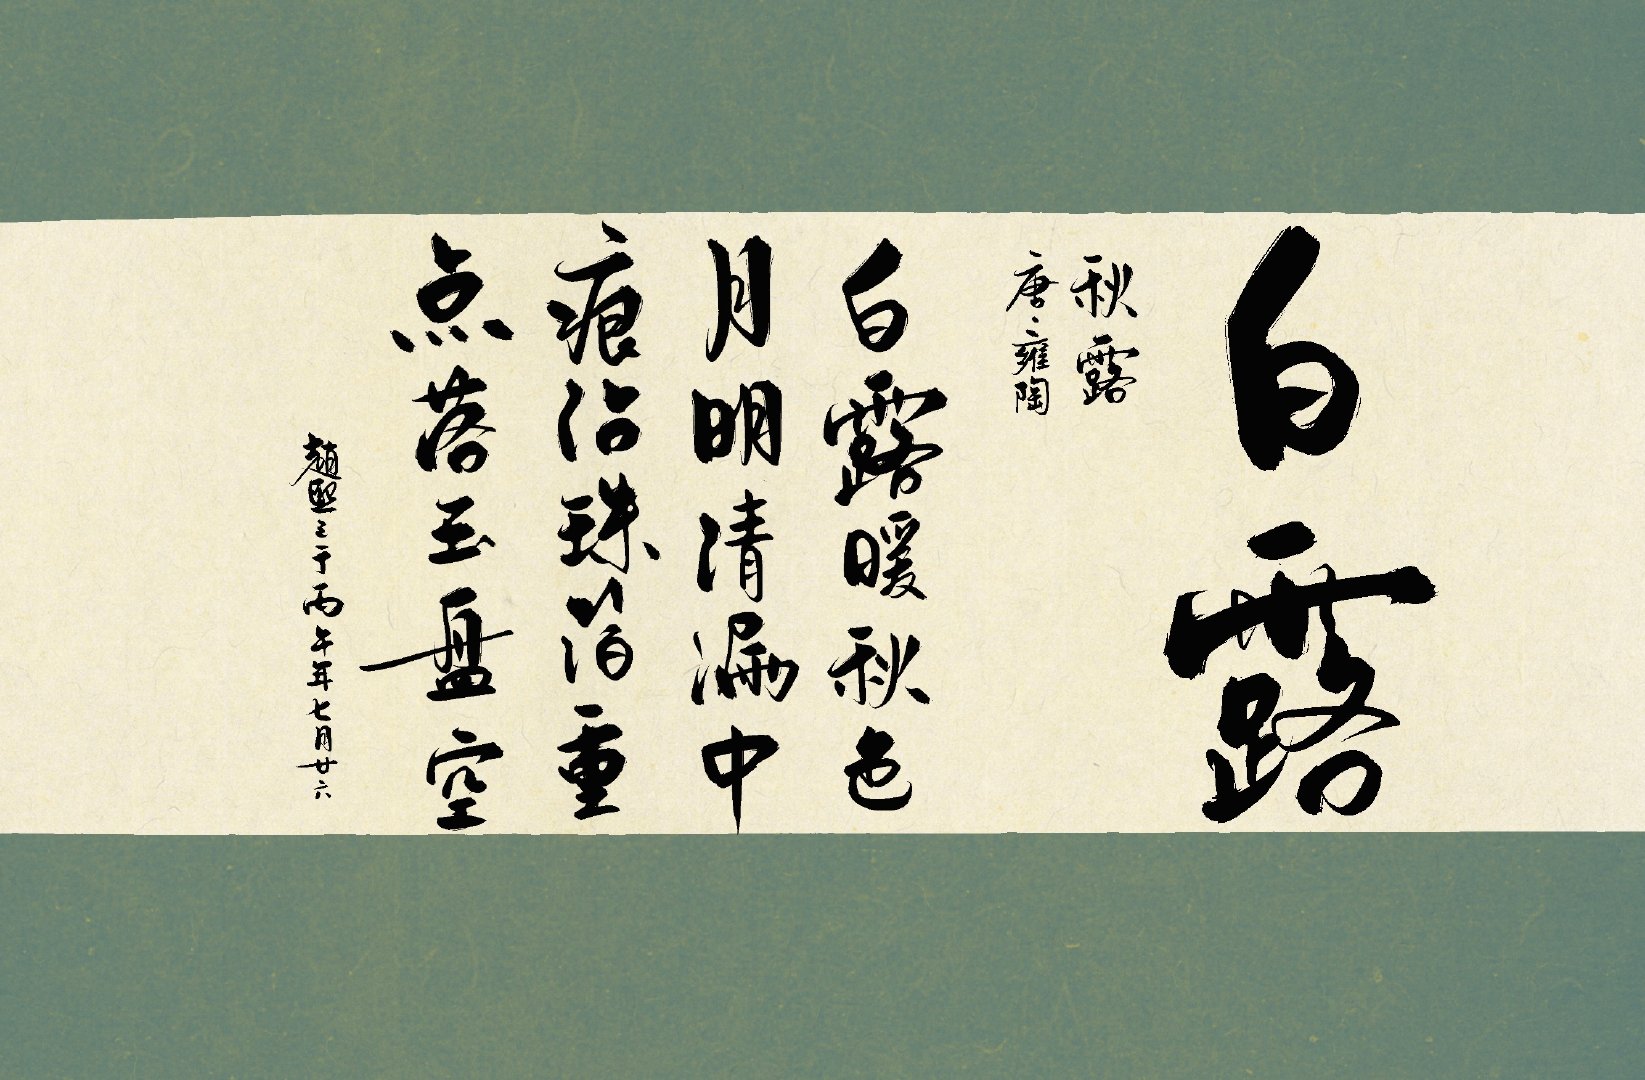 白露
秋露
唐、雍陶
白露暖秋色
月明清漏中
痕沾珠箔重
点落玉盘空
趙熙三于丙午年七月廿六